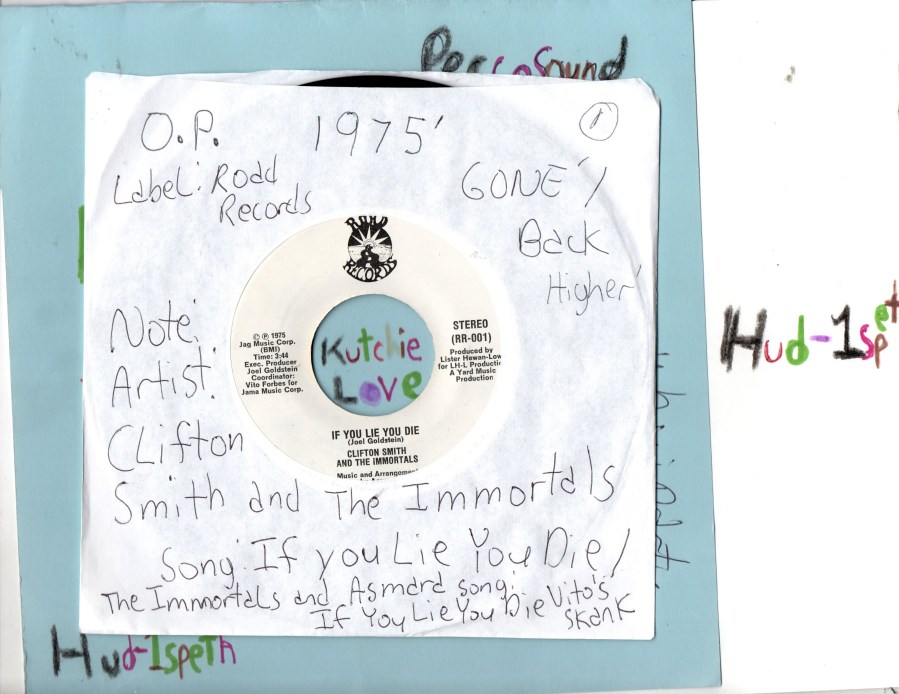 PercoSound
O.P. 1975'
Label: Road
Records
GONE'/
Back
Higher'
ROAD
RECORDS
© ℗ 1975
Jag Music Corp.
(BMI)
Time: 3:44
Exec. Producer
Joel Goldstein
Coordinator:
Vito Forbes for
Jama Music Corp.
Kutchie
Love
STEREO
(RR-001)
Produced by
Lister Hewan-Low
for LH-L Producti
A Yard Music
Production
IF YOU LIE YOU DIE
(Joel Goldstein)
CLIFTON SMITH
AND THE IMMORTALS
Music and Arrangemen
Note:
Artist:
Clifton
Smith and The Immortals
Song: If you Lie You Die/
The Immortals and Asmara song:
If You Lie You Die Vito's
Skank
Hud-1spet
Hud-1speth